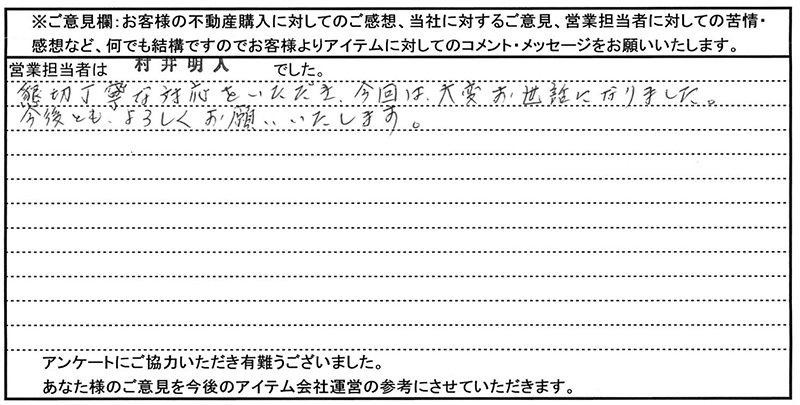 ※ご意見欄:お客様の不動産購入に対してのご感想、当社に対するご意見、営業担当者に対しての苦情・
感想など、何でも結構ですのでお客様よりアイテムに対してのコメント・メッセージをお願いいたします。
営業担当者は 村井明人 でした。
懇切丁寧な対応をいただき、今回は、大変お世話になりました。
今後とも、よろしくお願いいたします。
アンケートにご協力いただき有難うございました。
あなた様のご意見を今後のアイテム会社運営の参考にさせていただきます。